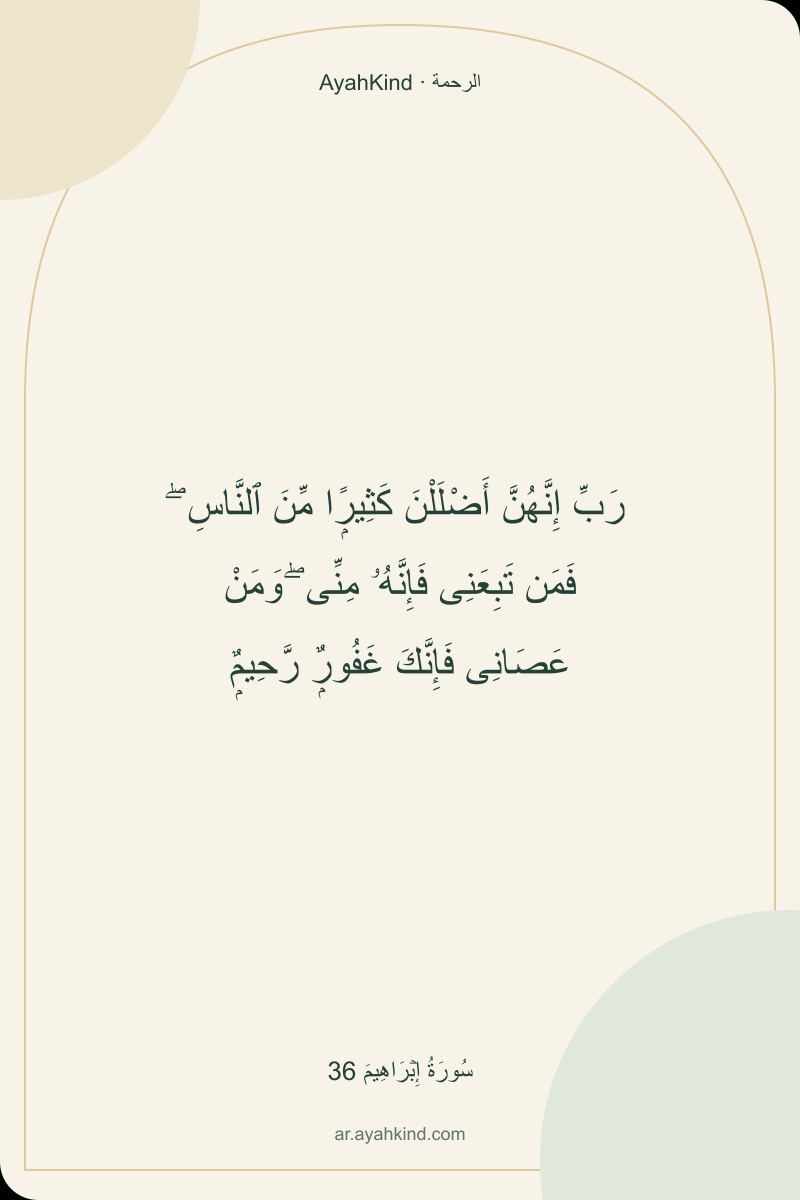 AyahKind · الرحمة
رَبِّ إِنَّهُنَّ أَضْلَلْنَ كَثِيرًۭا مِّنَ ٱلنَّاسِ ۖ
فَمَن تَبِعَنِى فَإِنَّهُۥ مِنِّى ۖ وَمَنْ
عَصَانِى فَإِنَّكَ غَفُورٌۭ رَّحِيمٌۭ
سُورَةُ إِبۡرَاهِيمَ 36
ar.ayahkind.com